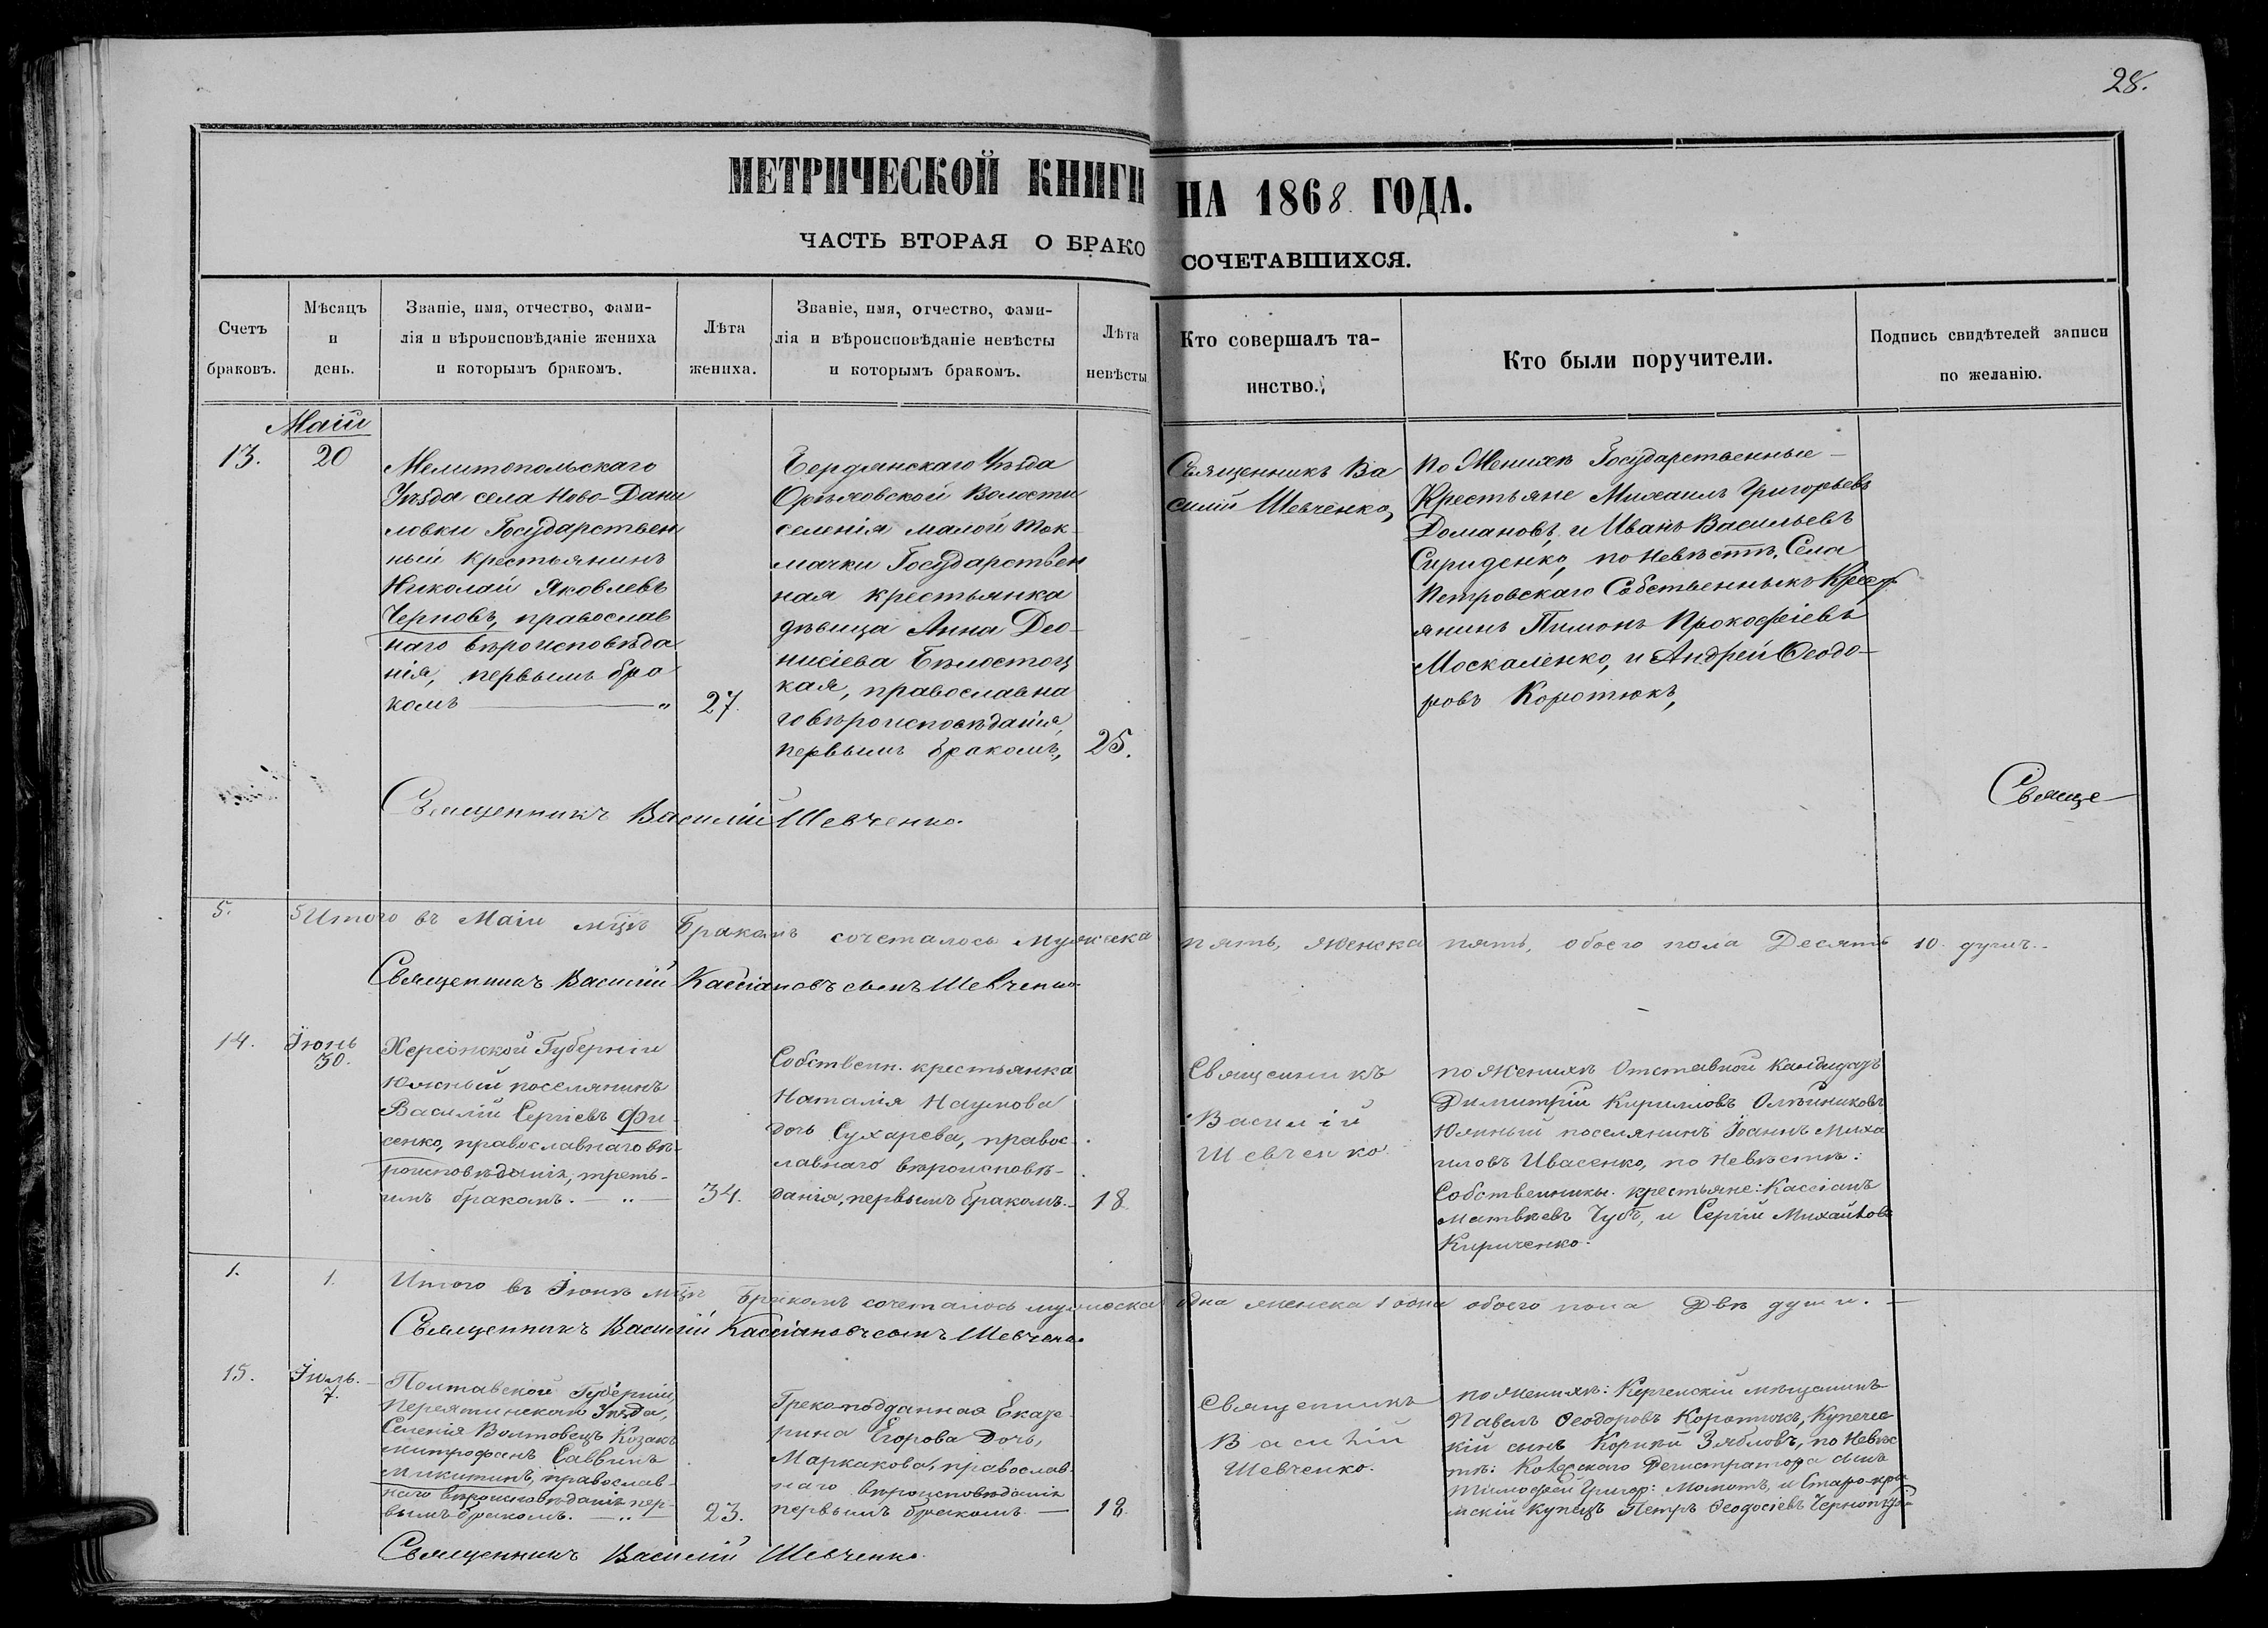 28.
МЕТРИЧЕСКОЙ КНИГИ НА 1868 ГОДА.
ЧАСТЬ ВТОРАЯ О БРАКОСОЧЕТАВШИХСЯ.
Счетъ
браковъ.
Мѣсяцъ
и
день.
Званіе, имя, отчество, фами-
лія и вѣроисповѣданіе жениха
и которымъ бракомъ.
Лѣта
жениха.
Званіе, имя, отчество, фами-
лія и вѣроисповѣданіе невѣсты
и которымъ бракомъ.
Лѣта
невѣсты
Кто совершалъ та-
инство.
Кто были поручители.
Подпись свидѣтелей записи
по желанію.
Маій
13.
20
Мелитопольскаго
Уѣзда села Ново-Дани
ловки Государствен
ный крестьянинъ
Николай Яковлевъ
Черновъ, православ
наго вѣроисповѣда
нія, первымъ бра
комъ — "
27.
Бердянскаго Уѣзда
Орѣховской Волости
селенія малой Ток-
мачки Государствен
ная крестьянка
дѣвица Анна Део-
нисіева Бѣлостоц
кая, православна
го вѣроисповѣданія,
первымъ бракомъ,
25.
Священникъ Ва
силій Шевченко,
По Женихѣ Государственные —
Крестьяне Михаилъ Григорьевъ
Домановъ, и Иванъ Васильевъ
Сириденко, по Невѣстѣ, Села
Петровскаго Собственникъ Крест
янинъ Пимонъ Прокофіевъ
Москаленко, и Андрей Ѳеодо-
ровъ Коротюкъ,
Священникъ Василій Шевченко.
Свяще—
5. 5 Итого въ Маіи мцѣ Бракомъ сочеталось мужеска пять, женска пять, обоего пола Десять 10 душъ.
Священникъ Василій Кассіановъ сынъ Шевченко
14.
Іюнь
30.
Херсонской Губерніи
Южный поселянинъ
Василій Сергіевъ Фи
сенко, православнаго вѣ-
роисповѣданія, треть-
имъ бракомъ. — " —
34.
Собственн. крестьянка
Наталія Наумова
дочь Сухарева, правос-
лавнаго вѣроисповѣ-
данія, первымъ бракомъ.
18.
Священникъ
Василій
Шевченко.
по Женихѣ Отставной Кандидатъ
Димитрій Кирилловъ Олѣйниковъ
Южный поселянинъ Іоаннъ Миха
иловъ Ивасенко, по Невѣстѣ:
Собственники крестьяне: Кассіанъ
Матвѣевъ Чубъ, и Сергій Михайловъ
Кириченко.
1. 1. Итого въ Іюнѣ мцѣ Бракомъ сочеталось мужеска одна женска 1 одна обоего пола Двѣ души. —
Священникъ Василій Кассіановъ сынъ Шевченко
15.
Іюль.
7.
Полтавской Губерніи,
Пирятинскаго Уѣзда,
Селенія Волтовецъ Козакъ
Митрофанъ Саввинъ
Микитинъ, православ-
наго вѣроисповѣданія пер-
вымъ бракомъ. — " —
23.
Грекоподданная Екате
рина Егорова Дочь,
Маркакова, православ-
наго вѣроисповѣданія
первымъ бракомъ —
18.
Священникъ
Василій
Шевченко.
по Женихѣ: Керченскій мѣщанинъ
Павелъ Ѳеодоровъ Коротюкъ, Купечес
кій сынъ Зябловъ, по Невѣс
тѣ: Регистратора сынъ
Тимофей Григор: Момотъ, и Старо-кры
мскій Купецъ Петръ Ѳеодосіевъ
Священникъ Василій Шевченко.